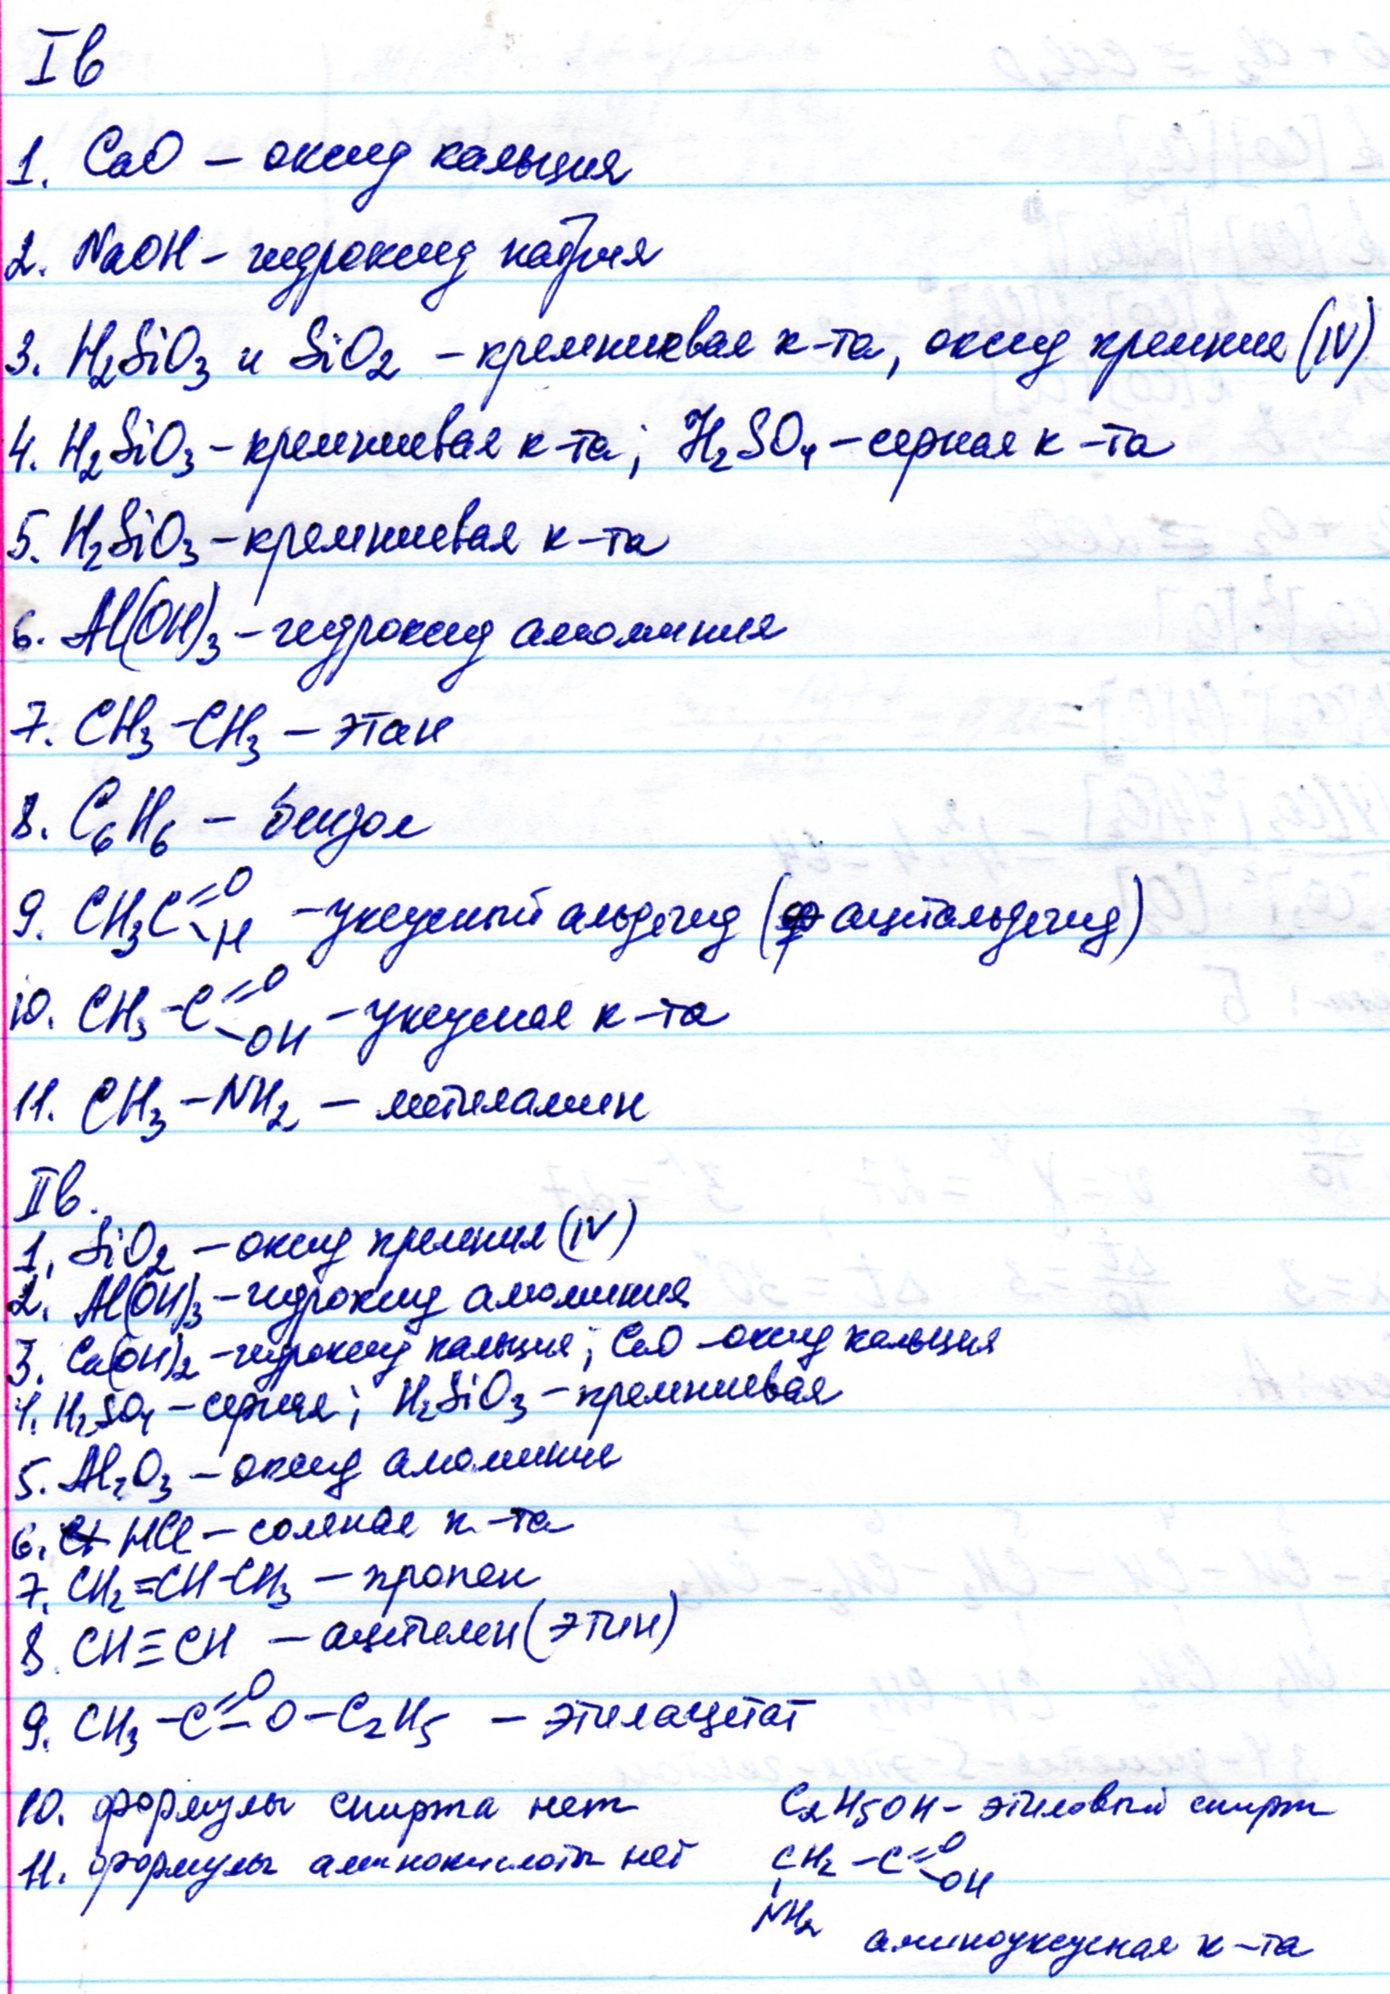 Iв
1. CaO – оксид кальция
2. NaOH – гидроксид натрия
3. H₂SiO₃ и SiO₂ – кремниевая к-та, оксид кремния (IV)
4. H₂SiO₃ – кремниевая к-та; H₂SO₄ – серная к-та
5. H₂SiO₃ – кремниевая к-та
6. Al(OH)₃ – гидроксид алюминия
7. CH₃ – CH₃ – этан
8. C₆H₆ – бензол
9. CH₃C=O –H – уксусный альдегид (ацетальдегид)
10. CH₃ – C=O –OH – уксусная к-та
11. CH₃ – NH₂ – метиламин
IIв.
1. SiO₂ – оксид кремния (IV)
2. Al(OH)₃ – гидроксид алюминия
3. Ca(OH)₂ – гидроксид кальция; CaO – оксид кальция
4. H₂SO₄ – серная; H₂SiO₃ – кремниевая
5. Al₂O₃ – оксид алюминия
6. HCl – соляная к-та
7. CH₂=CH-CH₃ – пропен
8. CH≡CH – ацетилен (этин)
9. CH₃ – C=O – O – C₂H₅ – этилацетат
10. формулы спирта нет C₂H₅OH – этиловый спирт
11. формулы аминокислоты нет CH₂ – C=O –OH
NH₂
аминоуксусная к-та